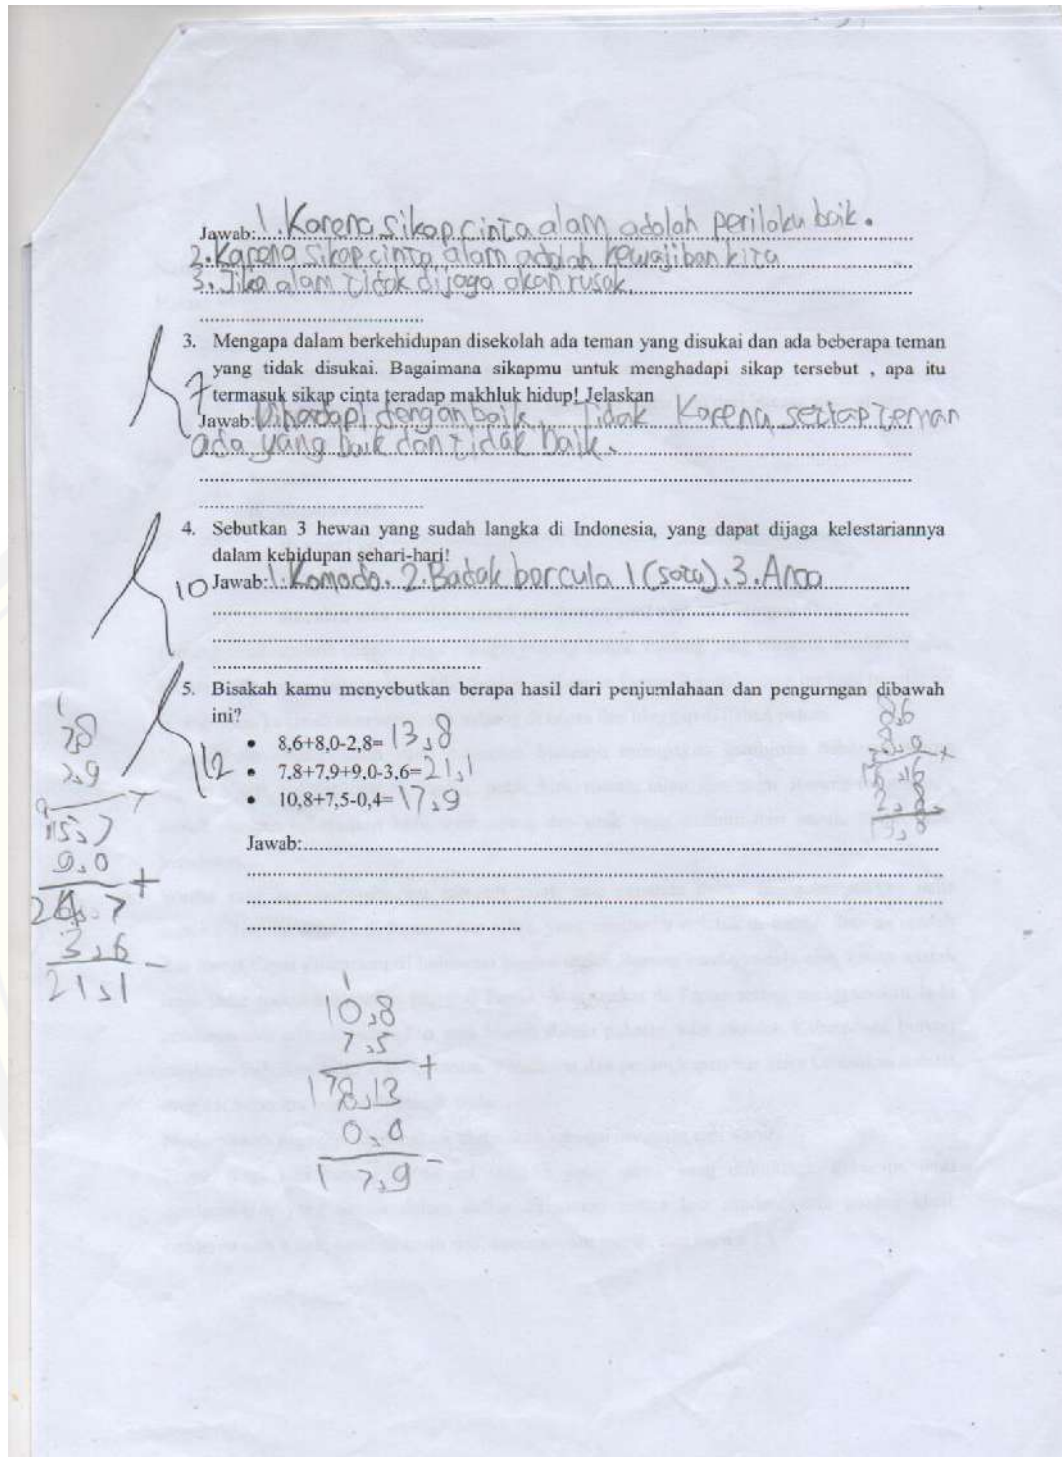 Jawab: 1. Karena sikap cinta alam adalah perilaku baik.
2. Karena sikap cinta alam adalah kewajiban kita
3. Jika alam tidak dijaga akan rusak.
3. Mengapa dalam berkehidupan disekolah ada teman yang disukai dan ada beberapa teman
yang tidak disukai. Bagaimana sikapmu untuk menghadapi sikap tersebut , apa itu
7 termasuk sikap cinta teradap makhluk hidup! Jelaskan
Jawab: Dihadapi dengan baik. Tidak Karena setiap teman
ada yang baik dan tidak baik.
4. Sebutkan 3 hewan yang sudah langka di Indonesia, yang dapat dijaga kelestariannya
dalam kehidupan sehari-hari!
10 Jawab: 1. Komodo. 2. Badak bercula 1 (satu). 3. Anoa
5. Bisakah kamu menyebutkan berapa hasil dari penjumlahaan dan pengurngan dibawah
ini?
12
• 8,6+8,0-2,8= 13,8
• 7,8+7,9+9,0-3,6= 21,1
• 10,8+7,5-0,4= 17,9
Jawab:
8,6
8,0 +
2,8
13,8
1
7,8
7,9 +
15,7
9,0 +
3,6 -
21,1
1
10,8
7,5 +
17,9